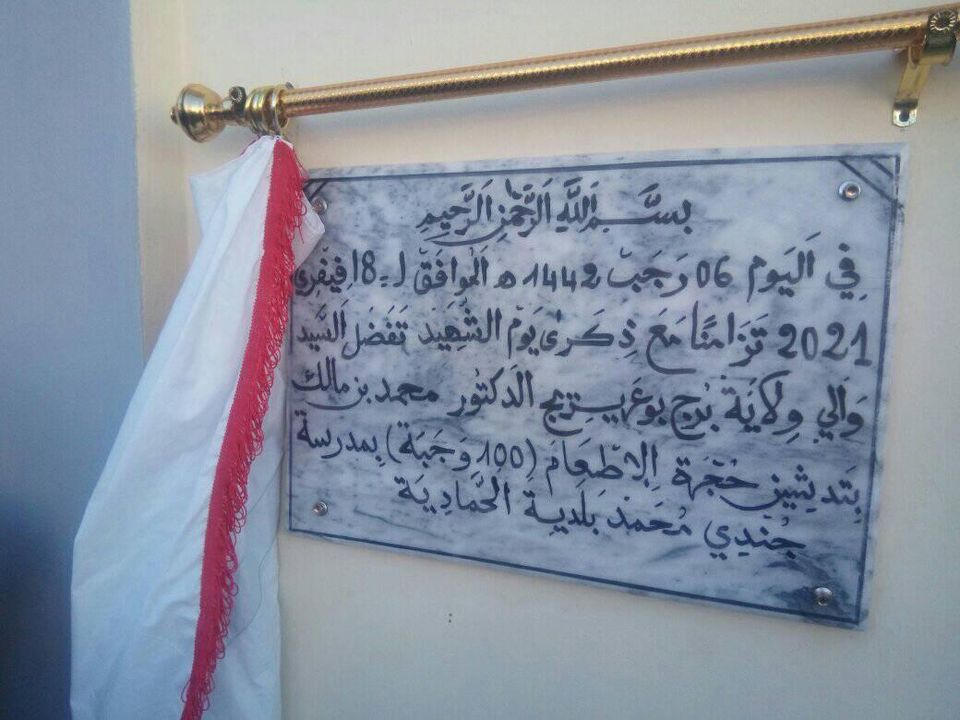 بِسْمِ اللَّهِ الرَّحْمَٰنِ الرَّحِيمِ
فِي اَليَوم 06 رَجَبْ 1442 ه اَلموافَقْ لـ 18 فِيفْرِي
2021 تَزَامنًا مَعَ ذِكرى يَوْم الشَّهِيد تَفَضل السَّيد
وَالي وِلايَة بُرْج بوعَريريج الَدكتُور محمد بن مالك
بِتَدشِينِ حُجْرَة الِإطْعَام (100 وَجَبَة) بِمدرسة
جُندِي مُحَمد بَلَدِية الحَمَّادِيَة